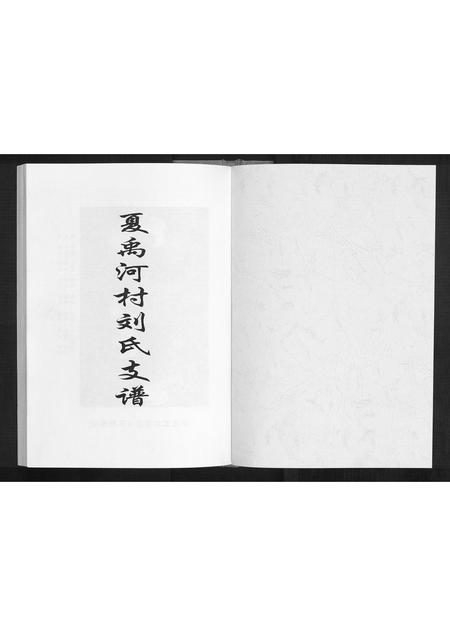 夏禹河村刘氏支谱